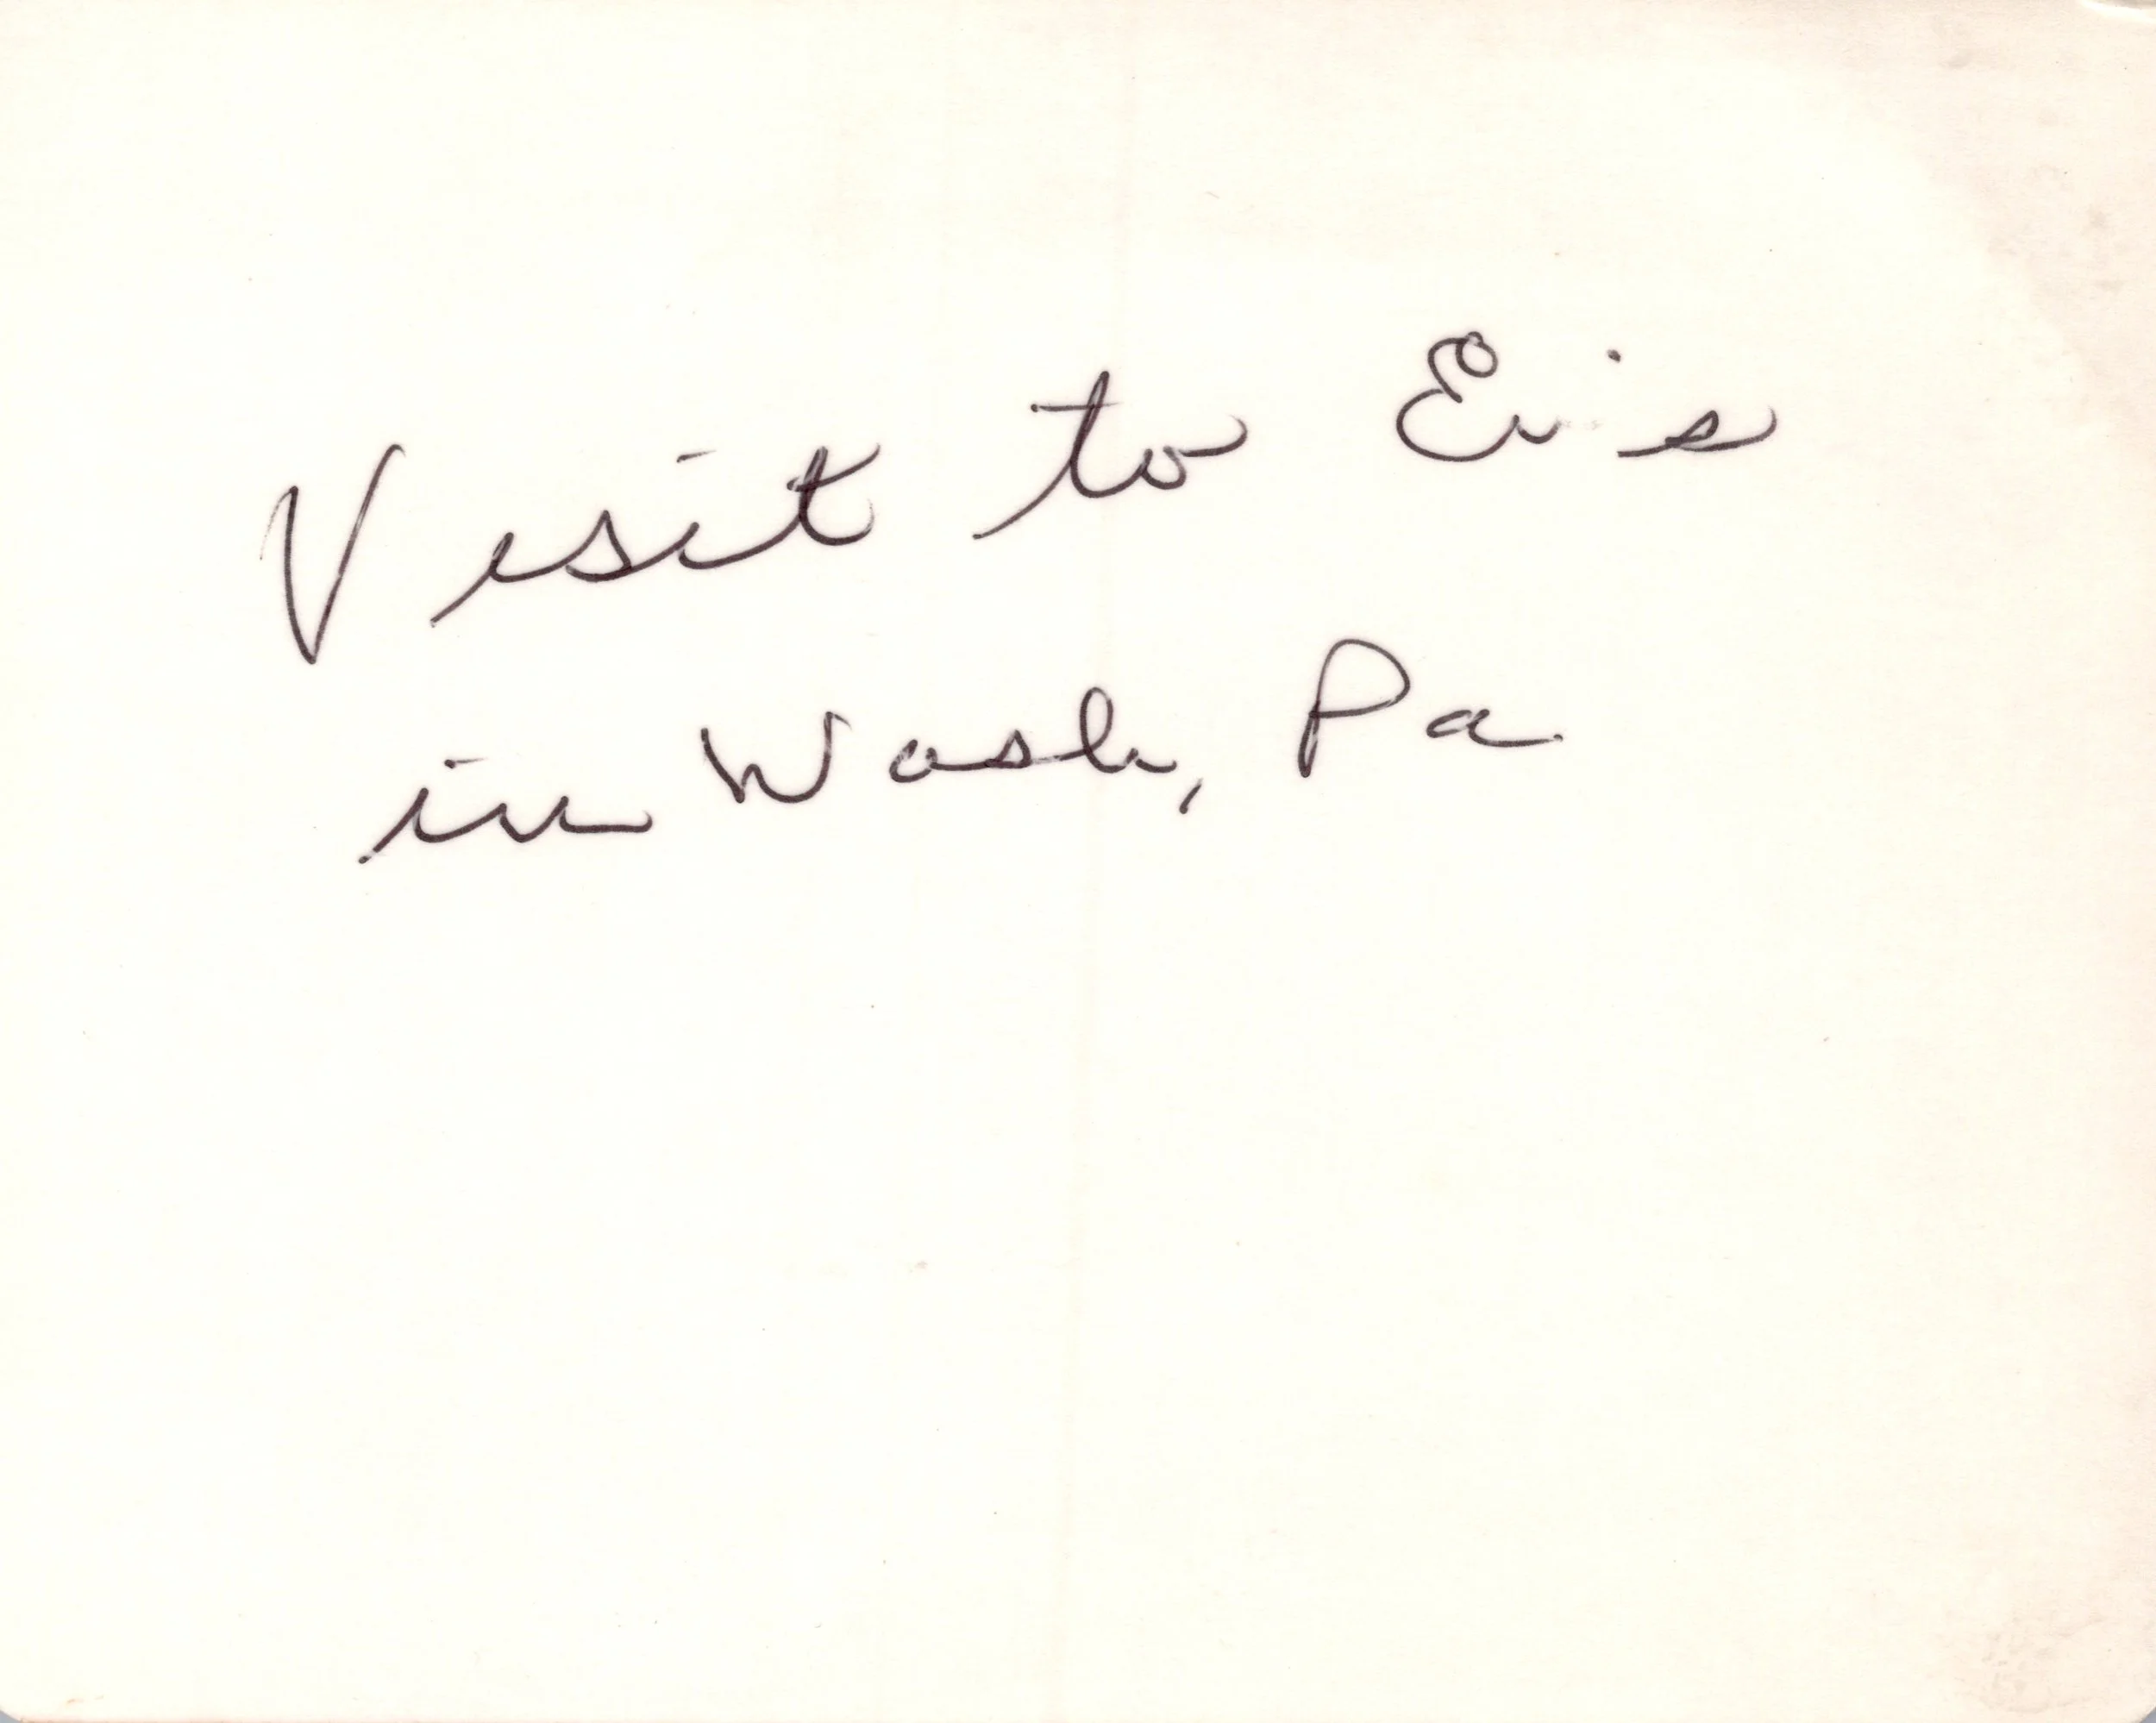 Visit to Ev's
in Wash, Pa.